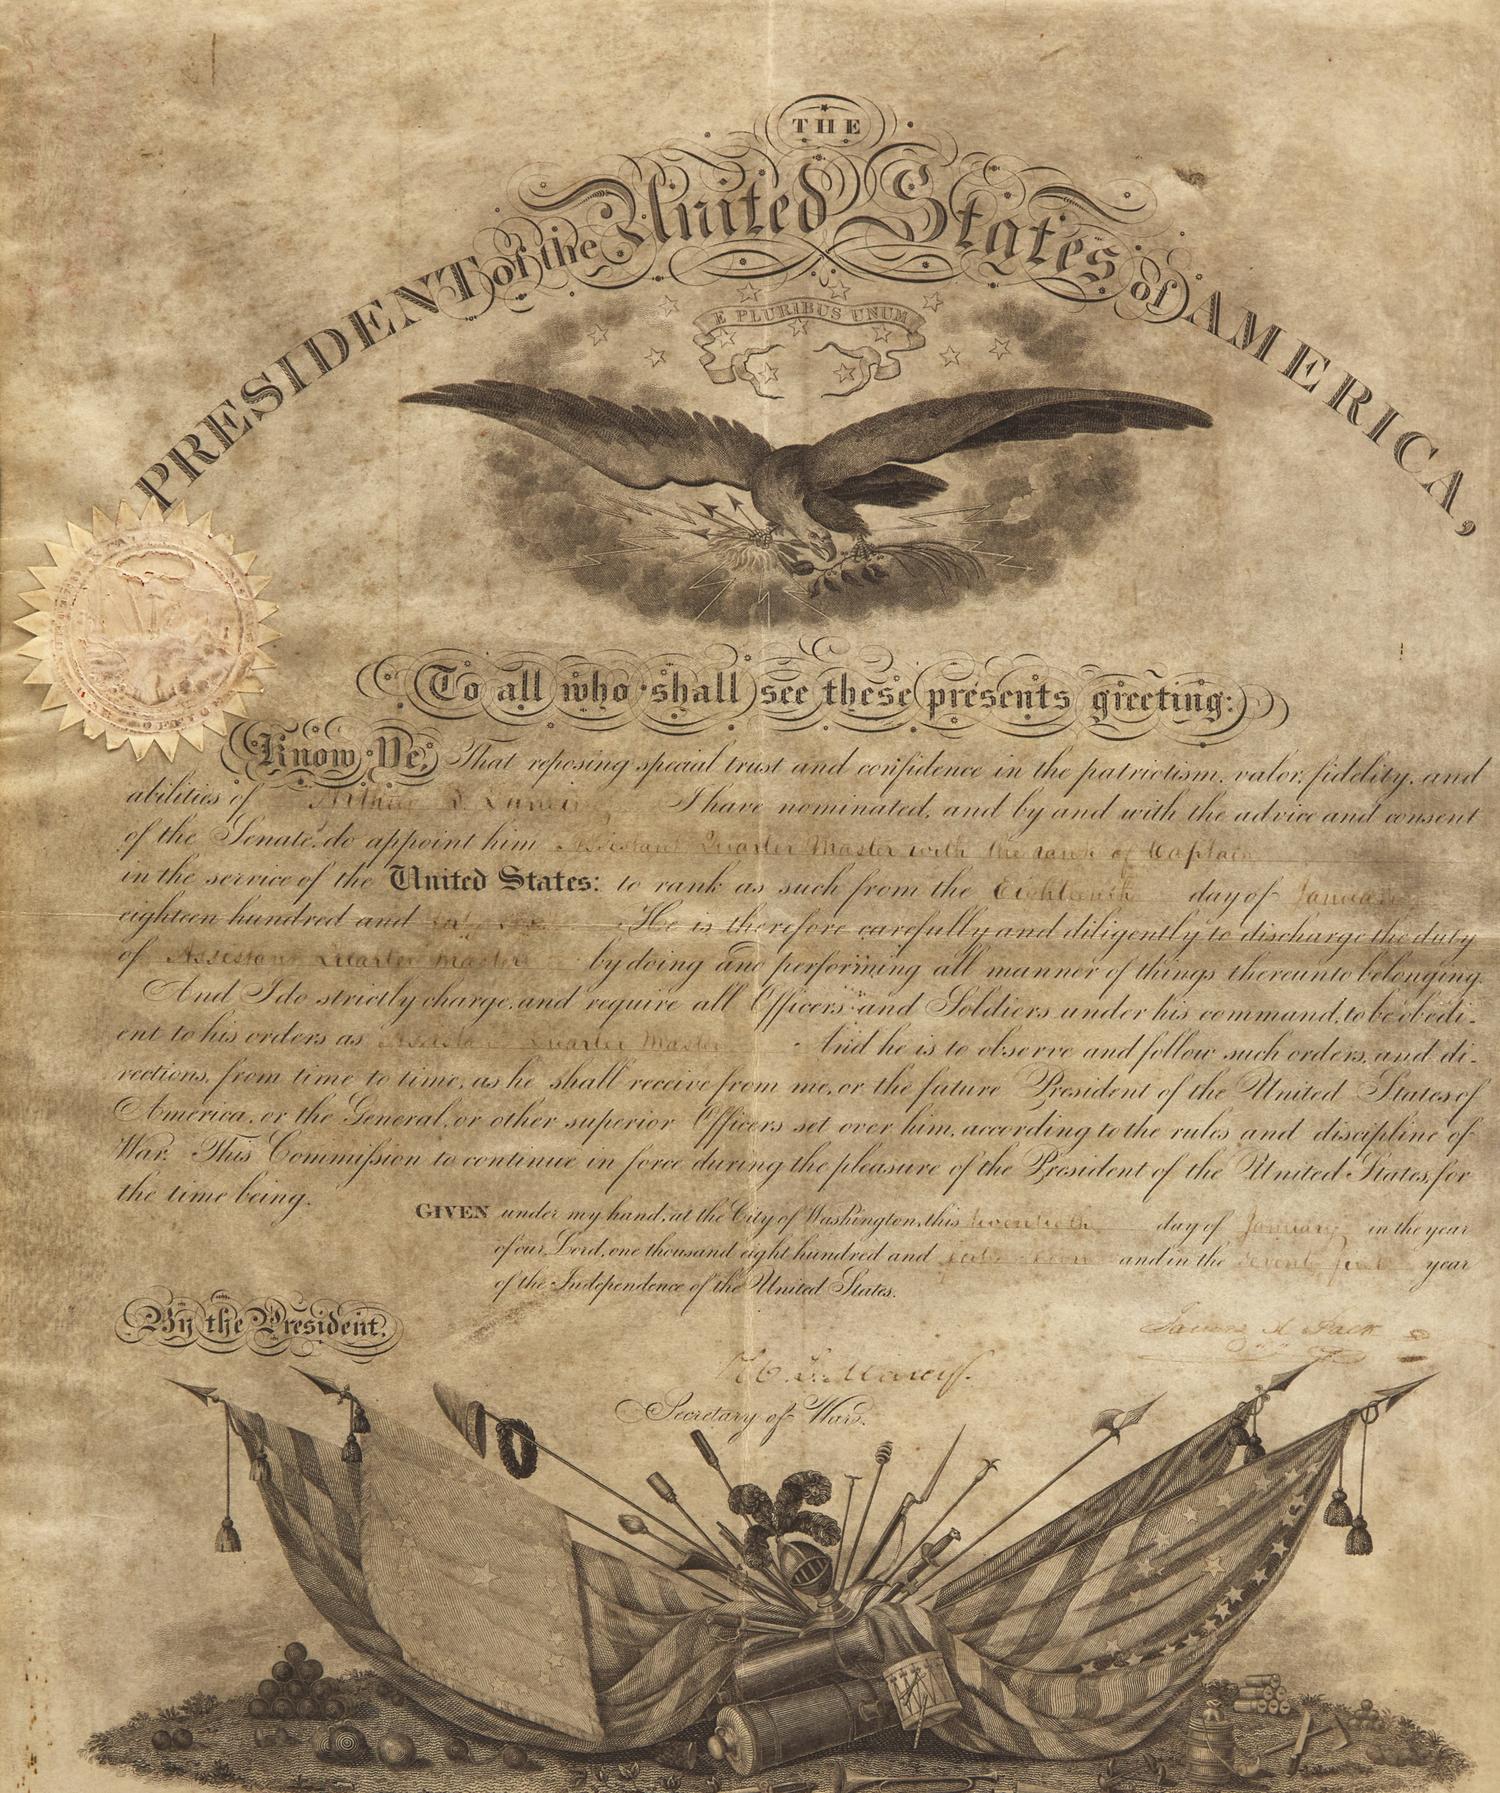 THE
PRESIDENT of the United States of AMERICA,
E PLURIBUS UNUM
To all who shall see these presents greeting:
Know Ye, That reposing special trust and confidence in the patriotism, valor, fidelity, and
abilities of Arthur I have nominated, and by and with the advice and consent
of the Senate, do appoint him Assistant Quarter Master with the rank of Captain
in the service of the United States: to rank as such from the Eighteenth day of January
eighteen hundred and He is therefore carefully and diligently to discharge the duty
of Assistant Quarter Master by doing and performing all manner of things thereunto belonging.
And I do strictly charge, and require all Officers and Soldiers under his command, to be obedi-
ent to his orders as Assistant Quarter Master And he is to observe and follow such orders, and di-
rections, from time to time, as he shall receive from me, or the future President of the United States of
America, or the General, or other superior Officers set over him, according to the rules and discipline of
War. This Commission to continue in force during the pleasure of the President of the United States, for
the time being.
GIVEN under my hand, at the City of Washington, this twentieth day of January in the year
of our Lord, one thousand eight hundred and and in the year
of the Independence of the United States.
By the President.
James K Polk
W. L. Marcy
Secretary of War.